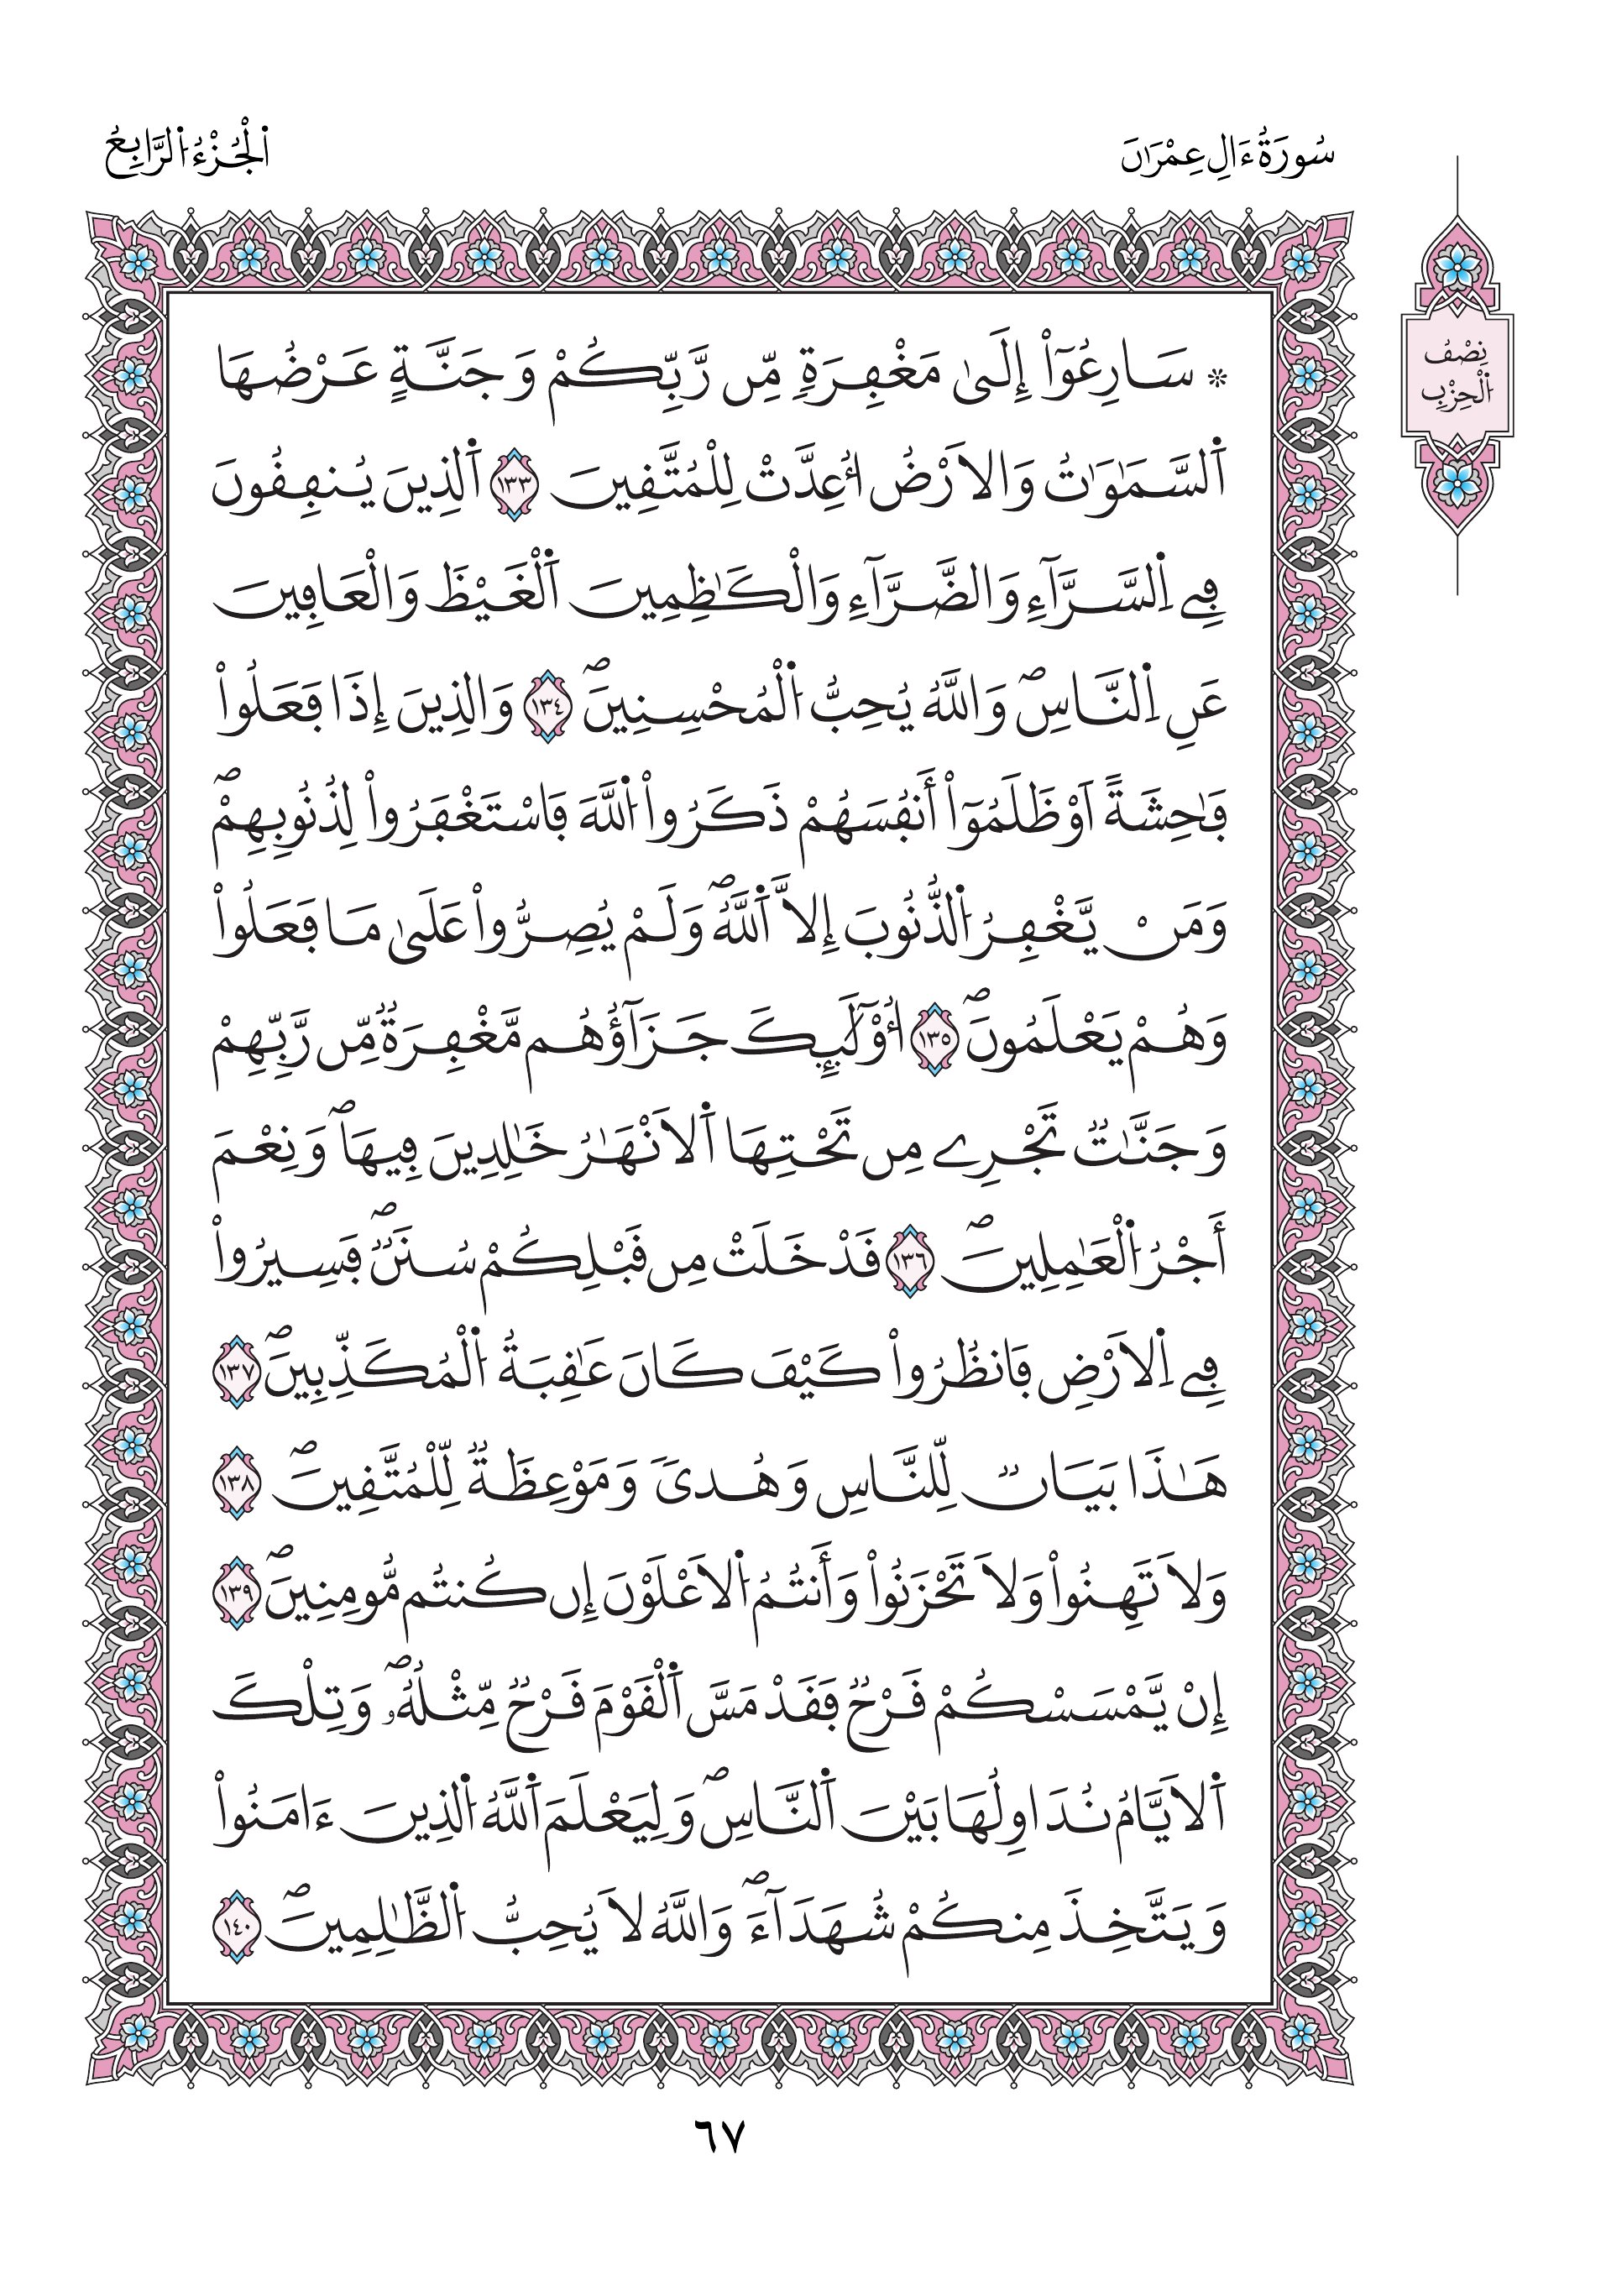 سُورَةُ ءَالِ عِمْرَٰنَ
اَ۬لْجُزْءُ اُ۬لرَّابِعُ
نِصْفُ
اُ۬لْحِزْبِ
۞ سَارِعُوٓاْ إِلَىٰ مَغْفِرَةٖ مِّن رَّبِّكُمْ وَجَنَّةٍ عَرْضُهَا
اَ۬لسَّمَٰوَٰتُ وَالَارْضُ أُعِدَّتْ لِلْمُتَّقِينَ ١٣٣ اَ۬لذِينَ يُنفِقُونَ
فِے اِ۬لسَّرَّآءِ وَالضَّرَّآءِ وَالْكَٰظِمِينَ اَ۬لْغَيْظَ وَالْعَافِينَ
عَنِ اِ۬لنَّاسِۖ وَاللَّهُ يُحِبُّ اُ۬لْمُحْسِنِينَۖ ١٣٤ وَالذِينَ إِذَا فَعَلُواْ
فَٰحِشَةً اَوْ ظَلَمُوٓاْ أَنفُسَهُمْ ذَكَرُواْ اُ۬للَّهَ فَاسْتَغْفَرُواْ لِذُنُوبِهِمْۖ
وَمَنْ يَّغْفِرُ اُ۬لذُّنُوبَ إِلَّا اَ۬للَّهُۖ وَلَمْ يُصِرُّواْ عَلَىٰ مَا فَعَلُواْ
وَهُمْ يَعْلَمُونَۖ ١٣٥ أُوْلَٰٓئِكَ جَزَآؤُهُم مَّغْفِرَةٞ مِّن رَّبِّهِمْ
وَجَنَّٰتٞ تَجْرِے مِن تَحْتِهَا اَ۬لَانْهَٰرُ خَٰلِدِينَ فِيهَاۖ وَنِعْمَ
أَجْرُ اُ۬لْعَٰمِلِينَۖ ١٣٦ قَدْ خَلَتْ مِن قَبْلِكُمْ سُنَنٞۖ فَسِيرُواْ
فِے اِ۬لَارْضِ فَانظُرُواْ كَيْفَ كَانَ عَٰقِبَةُ اُ۬لْمُكَذِّبِينَۖ ١٣٧
هَٰذَا بَيَانٞ لِّلنَّاسِ وَهُدىٗ وَمَوْعِظَةٞ لِّلْمُتَّقِينَۖ ١٣٨
وَلَا تَهِنُواْ وَلَا تَحْزَنُواْ وَأَنتُمُ اُ۬لَاعْلَوْنَ إِن كُنتُم مُّومِنِينَۖ ١٣٩
إِنْ يَّمْسَسْكُمْ قَرْحٞ فَقَدْ مَسَّ اَ۬لْقَوْمَ قَرْحٞ مِّثْلُهُۥۖ وَتِلْكَ
اَ۬لَايَّامُ نُدَاوِلُهَا بَيْنَ اَ۬لنَّاسِۖ وَلِيَعْلَمَ اَ۬للَّهُ اُ۬لذِينَ ءَامَنُواْ
وَيَتَّخِذَ مِنكُمْ شُهَدَآءَۖ وَاللَّهُ لَا يُحِبُّ اُ۬لظَّٰلِمِينَۖ ١٤٠
٦٧